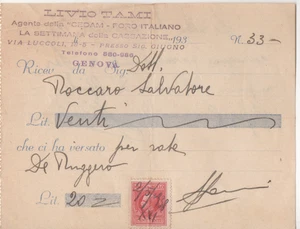 LIVIO TAMI
Agente della "CEDAM" - FORO ITALIANO
LA SETTIMANA della CASSAZIONE,
VIA LUCCOLI, PRESSO SIG. GIUNO
Telefono
GENOVA
193 N. 33-
Ricev da Sig. Dott.
Roccaro Salvatore
Lit. Venti
che ci ha versato per rate
De Ruggero
Lit. 20
XVI